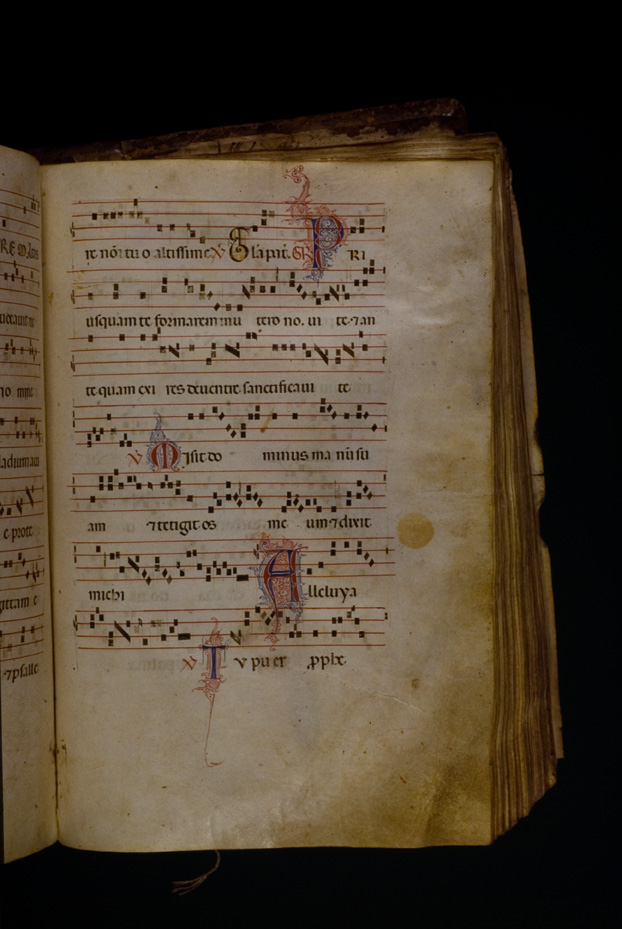 RE
re nōi tu o altissime ℣ Gla pat̃. GR̃ P RI
usquam te formarem in u tero no. ui te. ⁊ an
te quam exi res de uentre sanctificaui te.
℣ Misit do minus ma nū su
am ⁊ tetigit os me um ⁊ dixit
michi Alleluya
℣ Tu puer ꝓph̃.
e prote
⁊ psalle